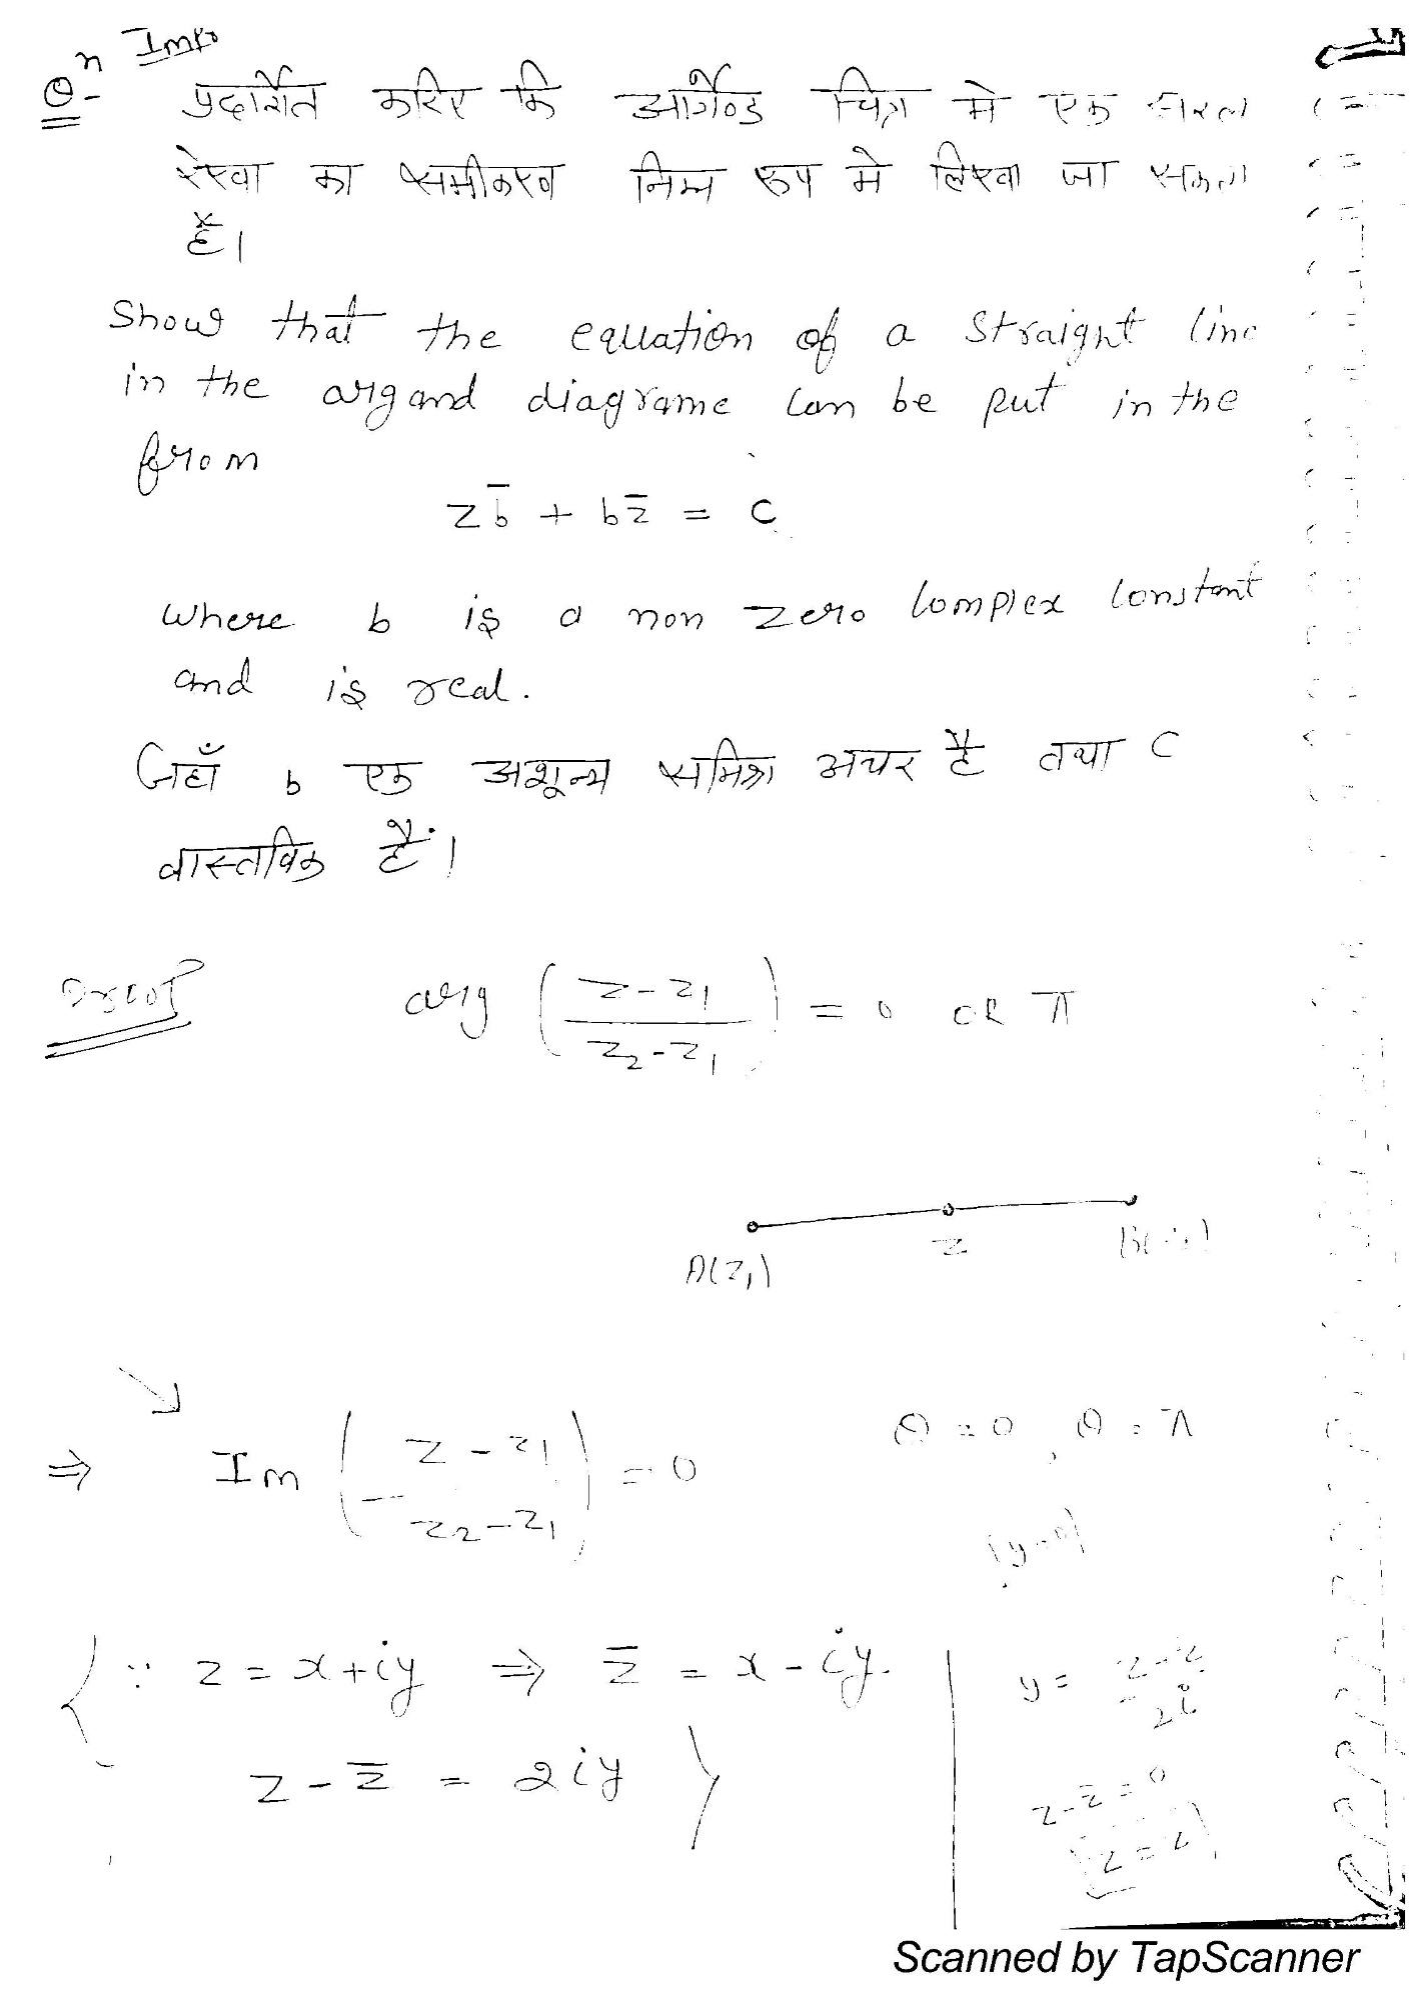 Imp
Qn- प्रदर्शित करिए कि आर्गेण्ड चित्र मे एक सरल
रेखा का समीकरण निम्न रूप मे लिखा जा सकता
है।
Show that the equation of a straight line
in the argand diagrame can be put in the
from
z b̄ + b z̄ = c
where b is a non zero complex constant
and is real.
जहाँ b एक अशून्य समिश्र अचर है तथा c
वास्तविक हैं।
Proof arg ( (z-z₁)/(z₂-z₁) ) = 0 OR π
A(z₁) z
⇒ Im ( (z-z₁)/(z₂-z₁) ) = 0 θ = 0, θ = π
(y=0)
{ ∵ z = x+iy ⇒ z̄ = x-iy.
z - z̄ = 2iy }
y = (z-z̄)/2i
z-z̄ = 0
Scanned by TapScanner